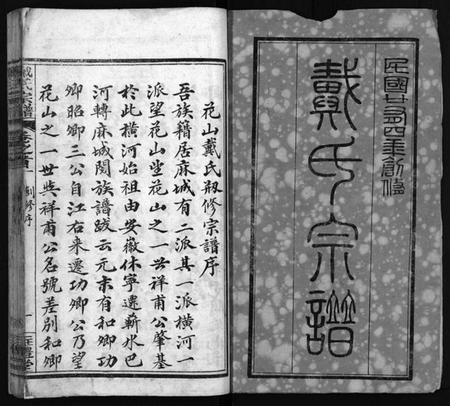 民國廿四年創修
戴氏宗譜
花山戴氏剏修宗譜序
吾族籍居麻城有二派其一派橫河一
派望花山堂花山之一世祥甫公肇基
於此橫河始祖由安徽休寧遷蘄水巴
河轉麻城閱族譜跋云元末有和卿功
卿昭卿三公自江右來遷功卿公乃望
花山之一世先祥甫公名號差別和卿
戴氏宗譜
卷之首
創修序
一